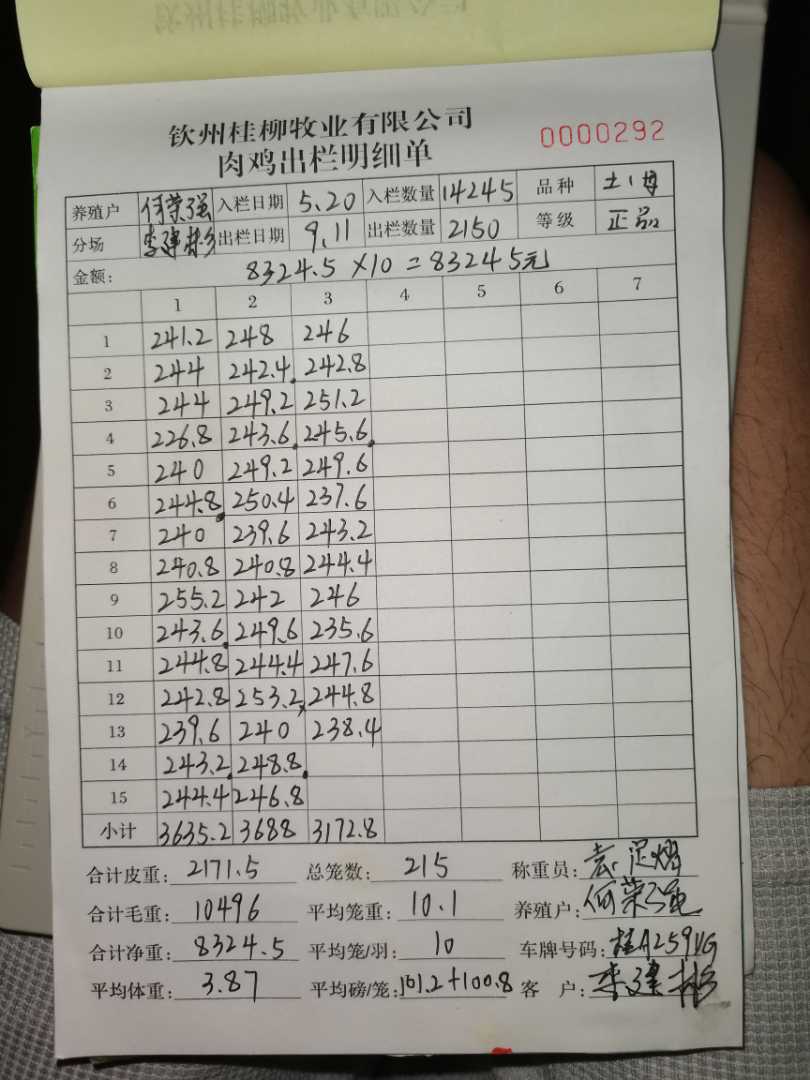 钦州桂柳牧业有限公司
肉鸡出栏明细单 0000292
养殖户 何荣强 入栏日期 5.20 入栏数量 14245 品种 土1母
分场 李建彬 出栏日期 9.11 出栏数量 2150 等级 正品
金额: 8324.5 ×10 = 83245元
1 2 3 4 5 6 7
1 241.2 248 246
2 244 242.4 242.8
3 244 249.2 251.2
4 226.8 243.6 245.6
5 240 249.2 249.6
6 244.8 250.4 237.6
7 240 239.6 243.2
8 240.8 240.8 244.4
9 255.2 242 246
10 243.6 249.6 235.6
11 244.8 244.4 247.6
12 242.8 253.2 244.8
13 239.6 240 238.4
14 243.2 248.8
15 244.4 246.8
小计 3635.2 3688 3172.8
合计皮重: 2171.5 总笼数: 215 称重员:
合计毛重: 10496 平均笼重: 10.1 养殖户: 何荣强
合计净重: 8324.5 平均笼/羽: 10 车牌号码: 桂A259UG
平均体重: 3.87 平均磅/笼: 101.2+100.8 客户: 李建彬